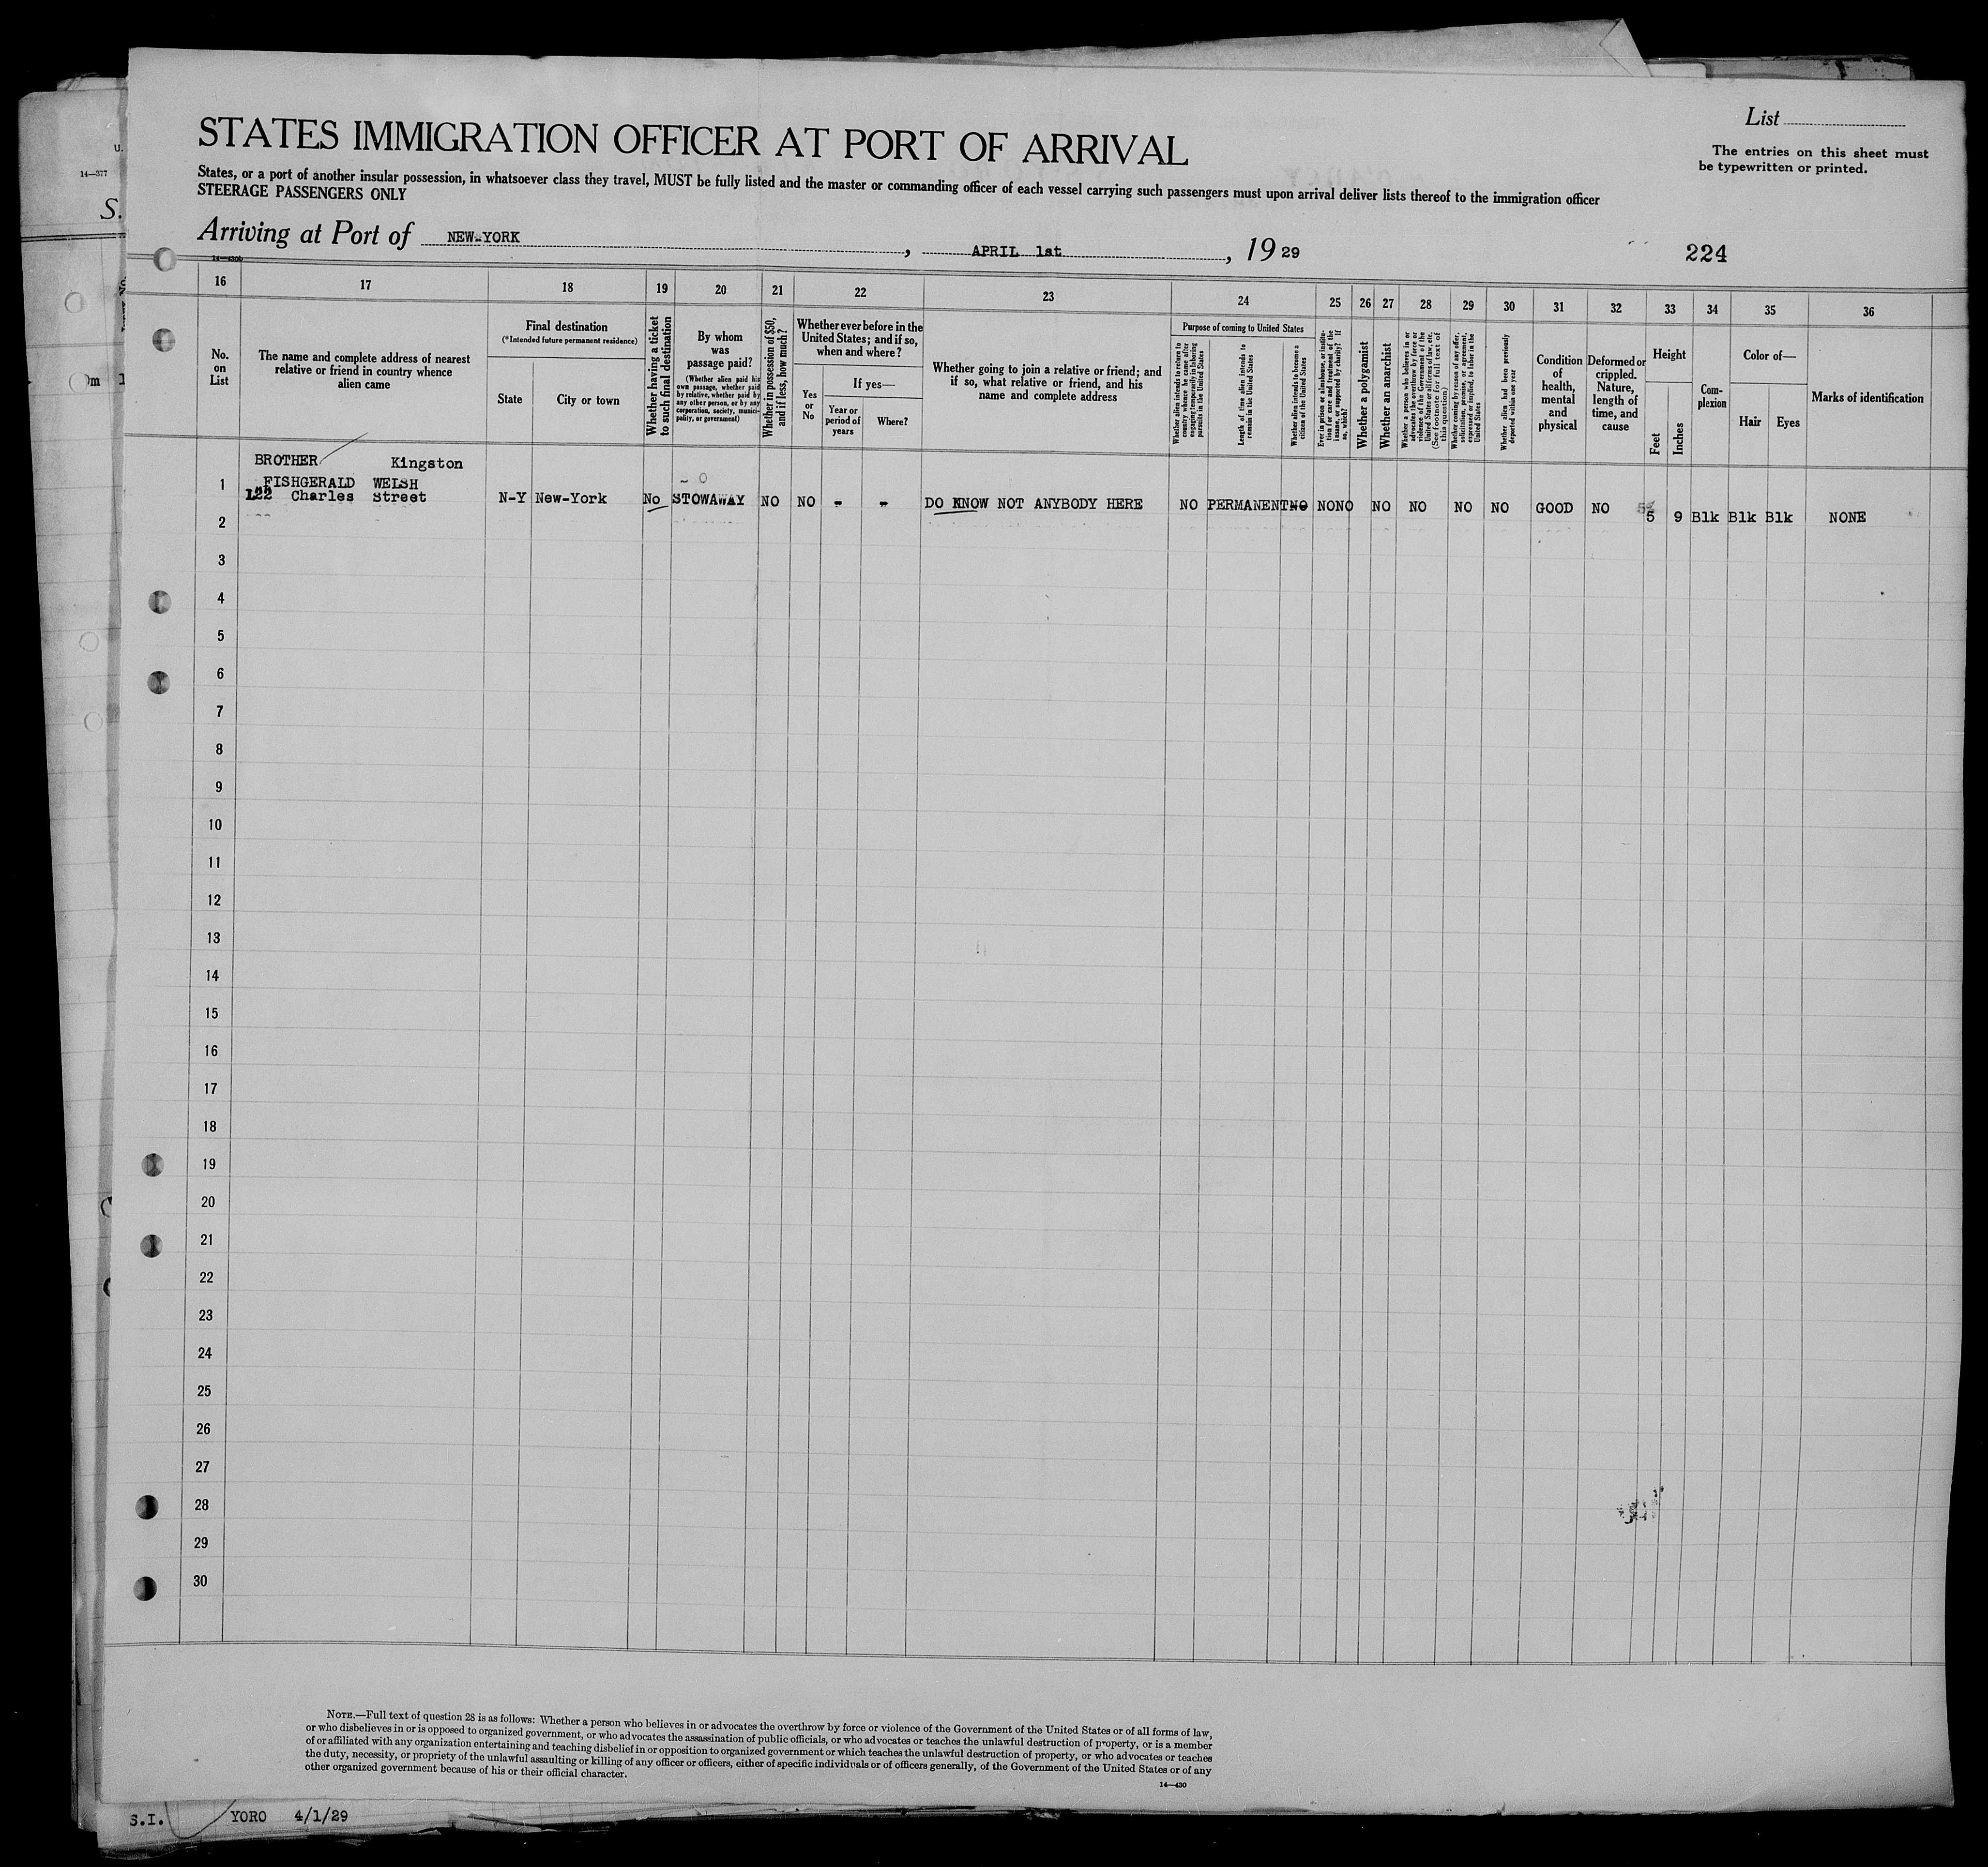 List
The entries on this sheet must
be typewritten or printed.
STATES IMMIGRATION OFFICER AT PORT OF ARRIVAL
States, or a port of another insular possession, in whatsoever class they travel, MUST be fully listed and the master or commanding officer of each vessel carrying such passengers must upon arrival deliver lists thereof to the immigration officer
STEERAGE PASSENGERS ONLY
Arriving at Port of NEW-YORK, APRIL 1st, 1929
224
14—430b
16 17 18 19 20 21 22 23 24 25 26 27 28 29 30 31 32 33 34 35 36
No.
on
List
The name and complete address of nearest
relative or friend in country whence
alien came
Final destination
(*Intended future permanent residence)
State
City or town
Whether having a ticket
to such final destination
By whom
was
passage paid?
(Whether alien paid his
own passage, whether paid
by relative, whether paid by
any other person, or by any
corporation, society, munici-
pality, or government)
Whether in possession of $50,
and if less, how much?
Whether ever before in the
United States; and if so,
when and where?
Yes
or
No
If yes—
Year or
period of
years
Where?
Whether going to join a relative or friend; and
if so, what relative or friend, and his
name and complete address
Purpose of coming to United States
Whether alien intends to return to
country whence he came after
engaging temporarily in laboring
pursuits in the United States
Length of time alien intends to
remain in the United States
Whether alien intends to become a
citizen of the United States
Ever in prison or almshouse, or institu-
tion for care and treatment of the
insane, or supported by charity? If
so, which?
Whether a polygamist
Whether an anarchist
Whether a person who believes in or
advocates the overthrow by force or
violence of the Government of the
United States or all forms of law, etc.
(See footnote for full text of
this question)
Whether coming by reason of any offer,
solicitation, promise, or agreement,
expressed or implied, to labor in the
United States
Whether alien had been previously
deported within one year
Condition
of
health,
mental
and
physical
Deformed or
crippled.
Nature,
length of
time, and
cause
Height
Feet
Inches
Com-
plexion
Color of—
Hair
Eyes
Marks of identification
BROTHER Kingston
1 FISHGERALD WELSH
122 Charles Street N-Y New-York No STOWAWAY NO NO - - DO KNOW NOT ANYBODY HERE NO PERMANENT NO NO NO NO NO NO NO GOOD NO 5 9 Blk Blk Blk NONE
2
3
4
5
6
7
8
9
10
11
12
13
14
15
16
17
18
19
20
21
22
23
24
25
26
27
28
29
30
NOTE.—Full text of question 28 is as follows: Whether a person who believes in or advocates the overthrow by force or violence of the Government of the United States or of all forms of law,
or who disbelieves in or is opposed to organized government, or who advocates the assassination of public officials, or who advocates or teaches the unlawful destruction of property, or is a member
of or affiliated with any organization entertaining and teaching disbelief in or opposition to organized government or which teaches the unlawful destruction of property, or who advocates or teaches
the duty, necessity, or propriety of the unlawful assaulting or killing of any officer or officers, either of specific individuals or of officers generally, of the Government of the United States or of any
other organized government because of his or their official character.
14—430
S.I. YORO 4/1/29
14—377
S.